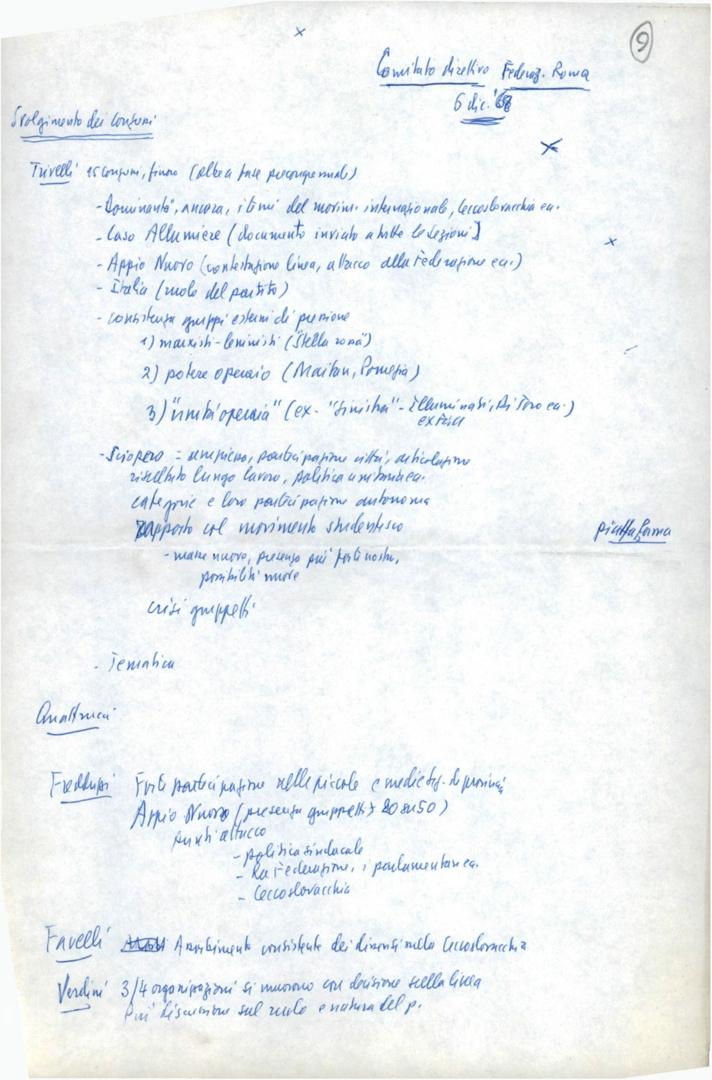 9
Comitato direttivo Federaz. Roma
6 dic. '68
Svolgimento dei congressi
Trivelli 15 congressi, finora (oltre a fase precongressuale)
- Dominante, ancora, i temi del movim. internazionale, Cecoslovacchia ecc.
- Caso Allumiere (documento inviato a tutte le sezioni)
- Appio Nuovo (contestazione linea, attacco alla Federazione ecc.)
- Italia (ruolo del partito)
- consistenza gruppi esterni di pressione
1) marxisti-leninisti ("Stella rossa")
2) potere operaio (Maitan, Pomezia)
3) "unità operaia" (ex- "Sinistra" - Illuminati, Di Toro ecc.)
ex FGCI
- Sciopero = ampiezza, partecipazione città, articolazione
risultato lungo lavoro, politica unitaria ecc.
categorie e loro partecipazione autonoma
Rapporto col movimento studentesco
piattaforma
nuovo, presenza più forte nostra,
possibilità nuove
crisi gruppetti
- Tematica
Quattrucci
Fredduzzi Forte partecipazione nelle piccole e medie sez. di provincia
Appio Nuovo (presenza gruppetti 20 su 50)
Punti attacco
- politica sindacale
- la Federazione, i parlamentari ecc.
- Cecoslovacchia
Favelli Assorbimento consistente dei dissensi sulla Cecoslovacchia
Verdini 3/4 organizzazioni si muovono con decisione sulla linea
Più discussione sul ruolo e natura del p.